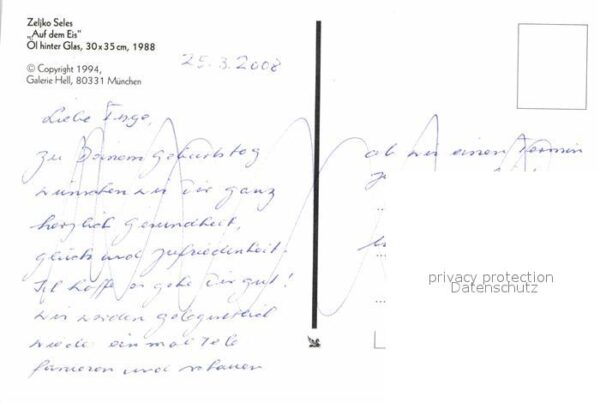 Zeljko Seles
„Auf dem Eis"
Öl hinter Glas, 30x35 cm, 1988
© Copyright 1994,
Galerie Hell, 80331 München
25.3.2008
Liebe Inge,
zu Deinem Geburtstag
wünschen wir Dir ganz
herzlich Gesundheit,
Glück und Zufriedenheit.
Ich hoffe es gehe Dir gut!
Wir werden gelegentlich
wieder einmal tele
fonieren und schauen
ob wir einen Termin
privacy protection
Datenschutz